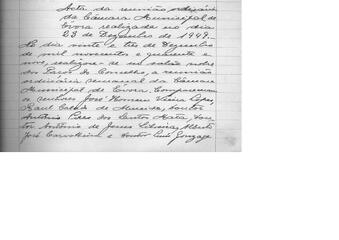 Acta da reunião ordinária
da Câmara Municipal de
Évora realizada no dia
23 de Dezembro de 1949.
No dia vinte e três de Dezembro
de mil novecentos e quarenta e
nove, realizou-se no salão nobre
dos Paços do Concelho, a reunião
ordinária semanal da Câmara
Municipal de Évora. Compareceram
os senhores José Vieira Lopes,
Raul de Almeida, doutor
António Pires dos Santos Mata, dou-
tor António de Jesus Alberto
José Carvalheira e doutor Luís Gonzaga